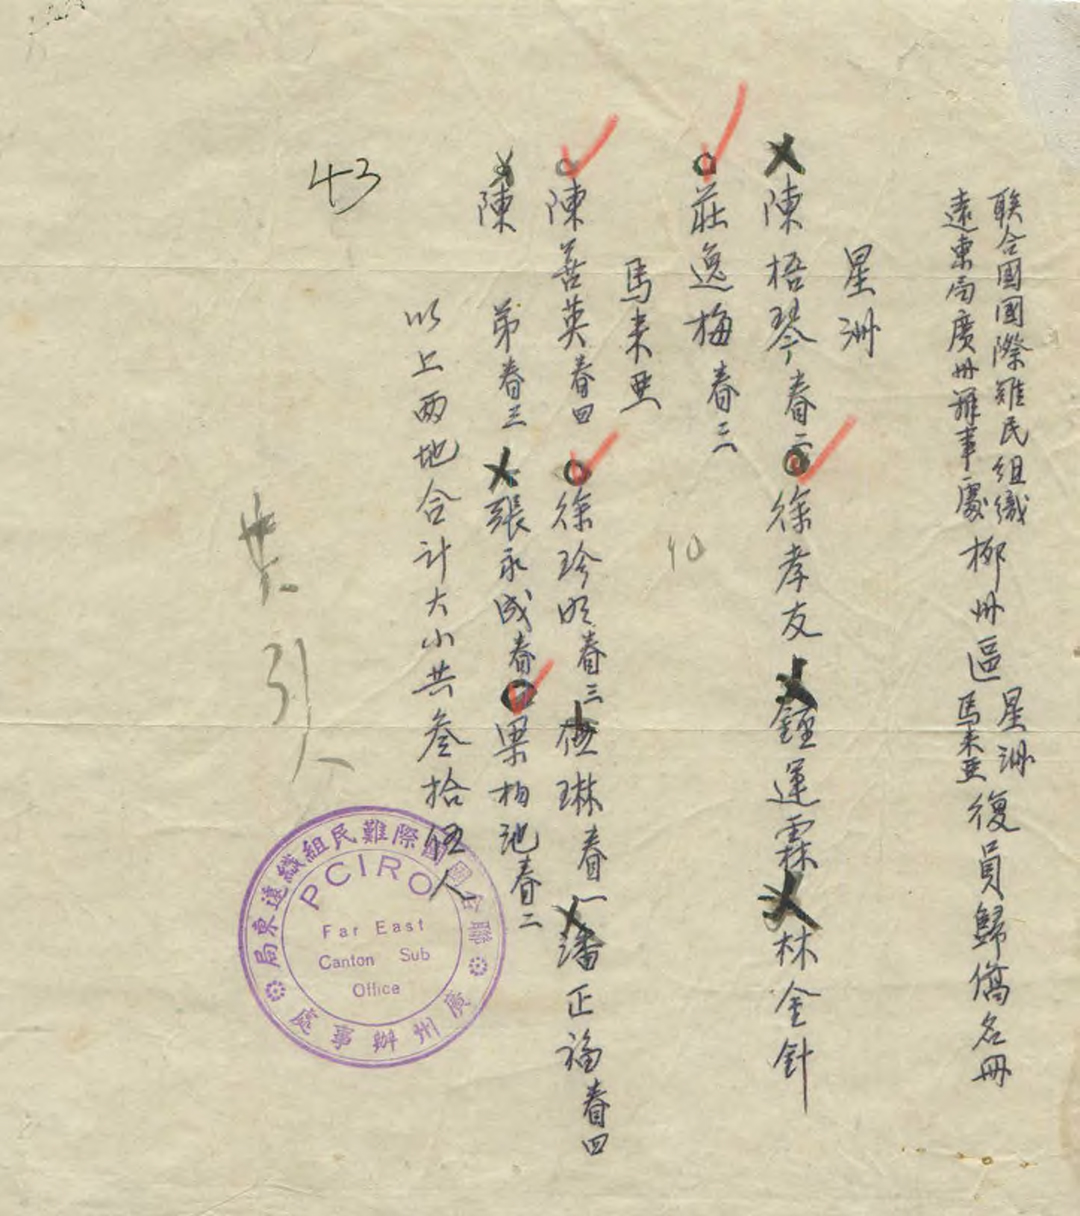 联合國國際難民組織
遠東局廣州辦事處
柳州區
星洲
馬来亞
復員歸僑名冊
星洲
陳梧琴眷二 徐孝友 鍾運霖 林金針
莊逸梅眷三
馬来亞
陳善英眷四 徐珍明眷三 伍琳眷一 潘正福眷四
陳 弟眷三 張永成眷四 梁栢池眷二
以上两地合計大小共叁拾伍人
43
40
聯合國國際難民組織遠東局
廣州辦事處
PCIRO
Far East
Canton Sub
Office